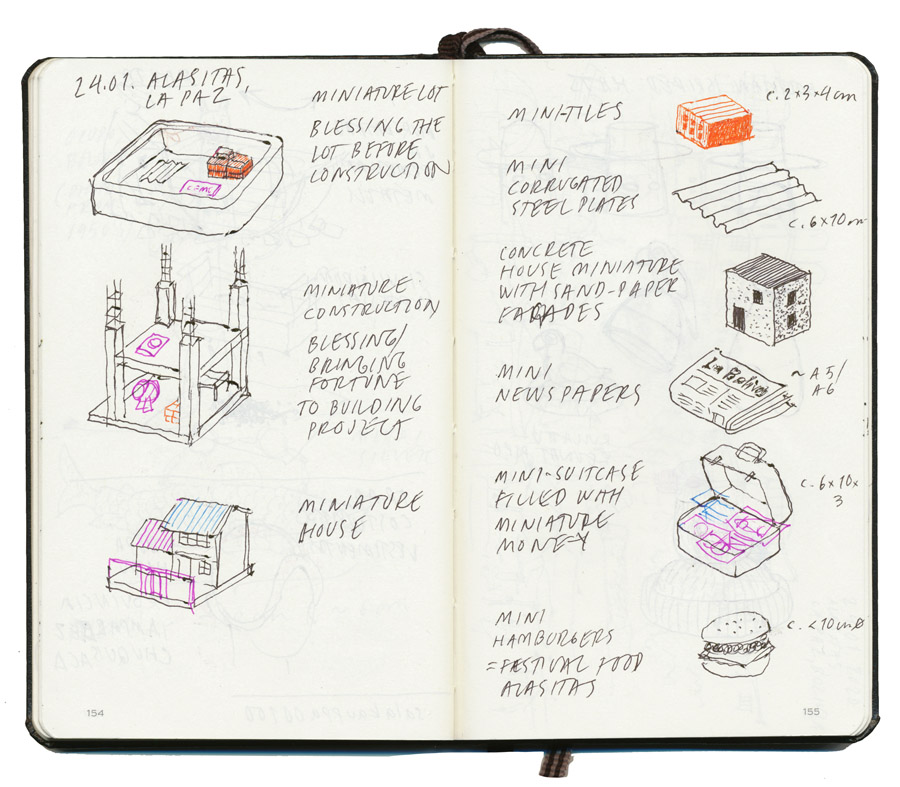 24.01. ALASITAS,
LA PAZ
MINIATURE LOT
BLESSING THE
LOT BEFORE
CONSTRUCTION
CEME
MINIATURE
CONSTRUCTION
BLESSING/
BRINGING
FORTUNE
TO BUILDING
PROJECT
MINIATURE
HOUSE
154
MINI-TILES
c. 2x3x4 cm
MINI
CORRUGATED
STEEL PLATES
c. 6x10 cm
CONCRETE
HOUSE MINIATURE
WITH SAND-PAPER
FACADES
MINI
NEWSPAPERS
~ A5/
A6
MINI-SUITCASE
FILLED WITH
MINIATURE
MONEY
c. 6x10x
3
MINI
HAMBURGERS
= FESTIVAL FOOD
ALASITAS
c. <10cm ø
155